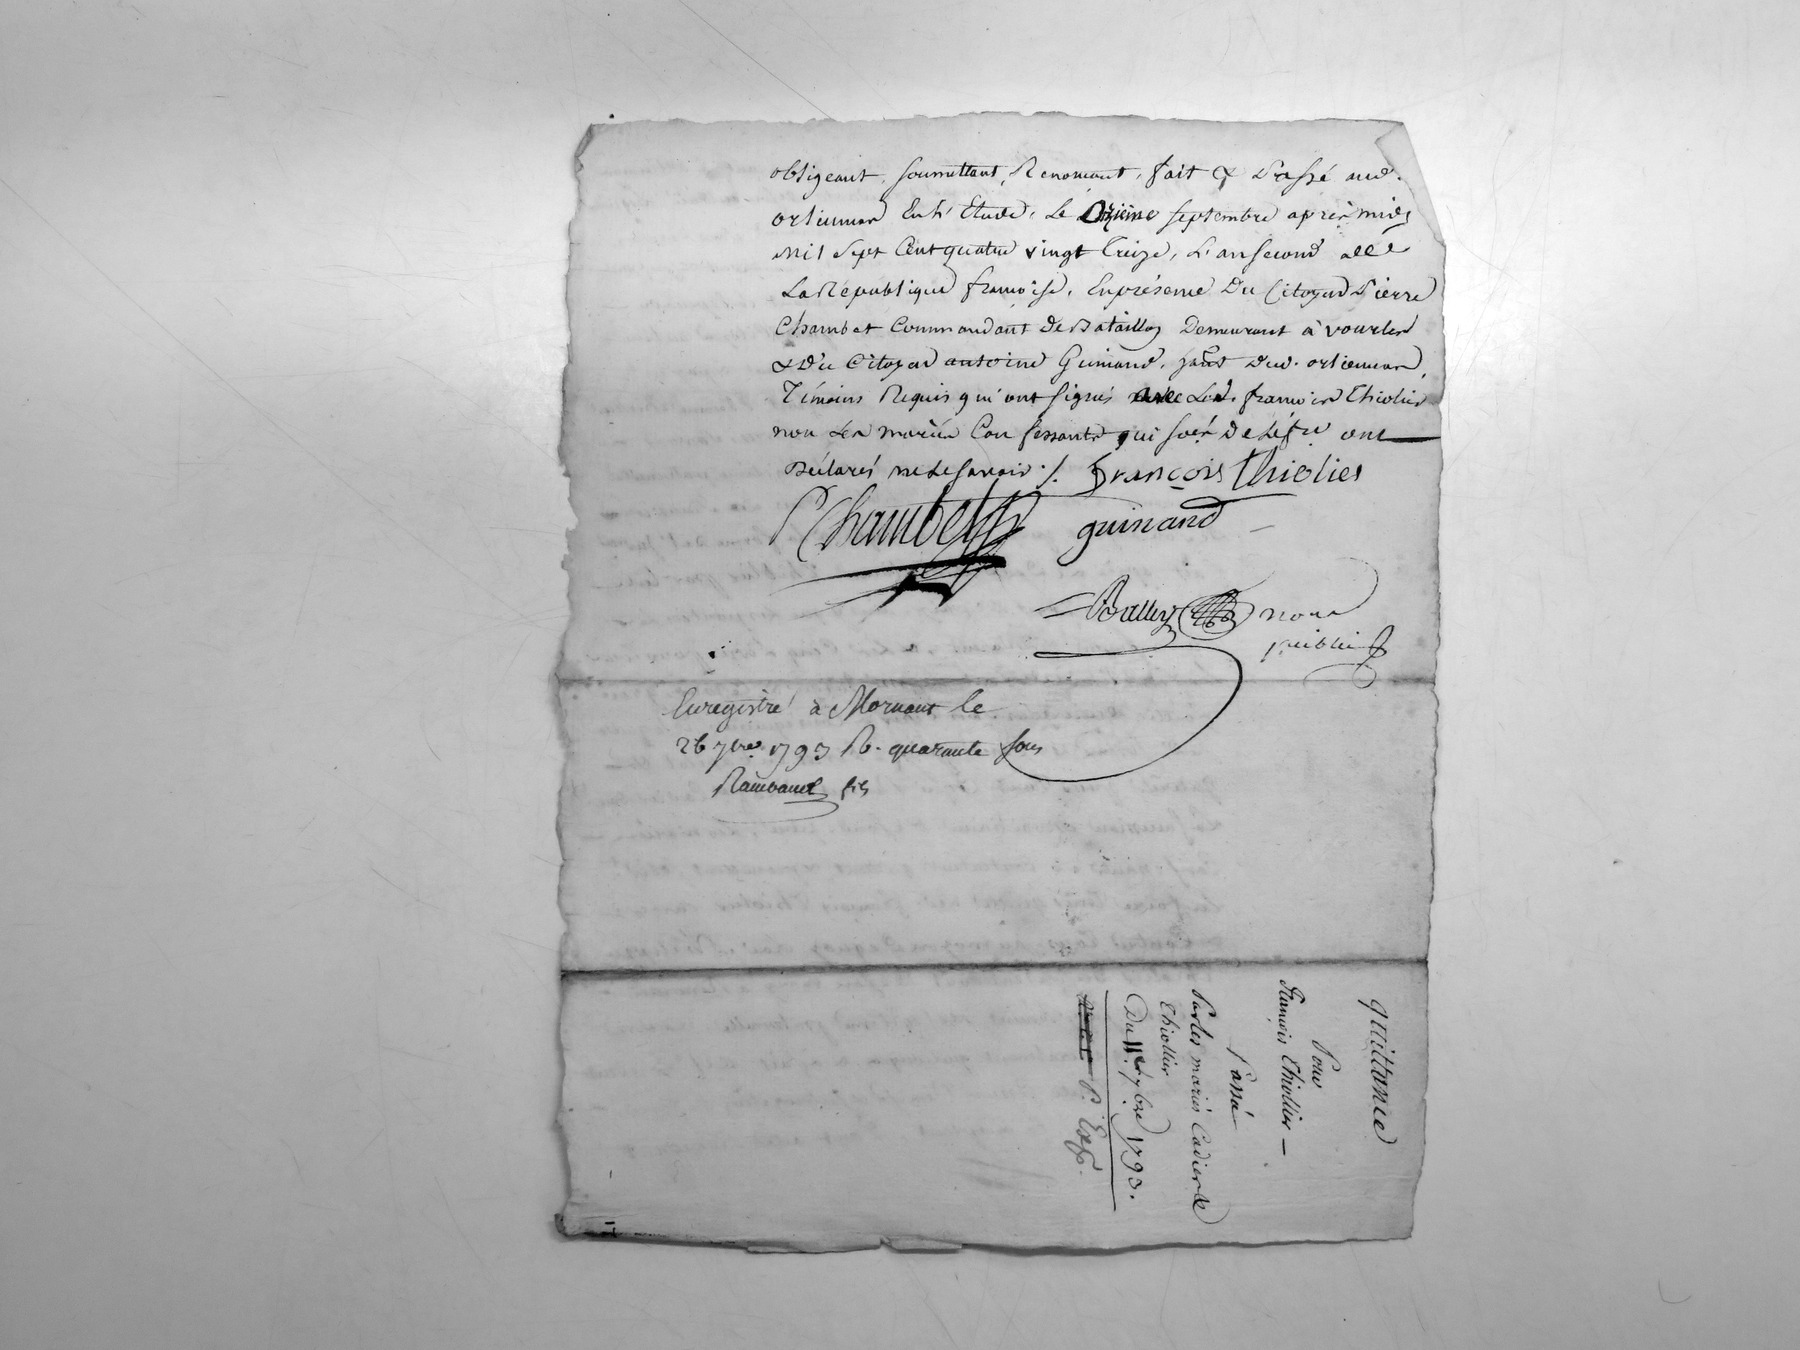 obligeant, soumettant, Renoncant, fait & Passé aud.
orlienas En h. Etude, Le Onzieme septembre après midy
mil sept Cent quatre vingt Treize, L'an second de
La Republique francoise, En présence Du Citoyen Pierre
Chambet Commandant de Bataillon Demeurant à vourles
& Du Citoyen antoine Guinand, hant dud. orlienas,
Témoins Requis qui ont signés avec Led. francois Thiolier
non Les mariés Confessants qui de ce ont
Déclarés ne le savoir ./. François Thiolier
P Chambet guinand
Balley
public
Enregistré à Mornant le
26 7bre 1793 R. quarante sous
Raimbaud fils
quittance
Pour
François Thiollier —
Passé
Par les mariés Cadier &
Thiollier
Du 11e. 7bre 1793.
P. Exp.